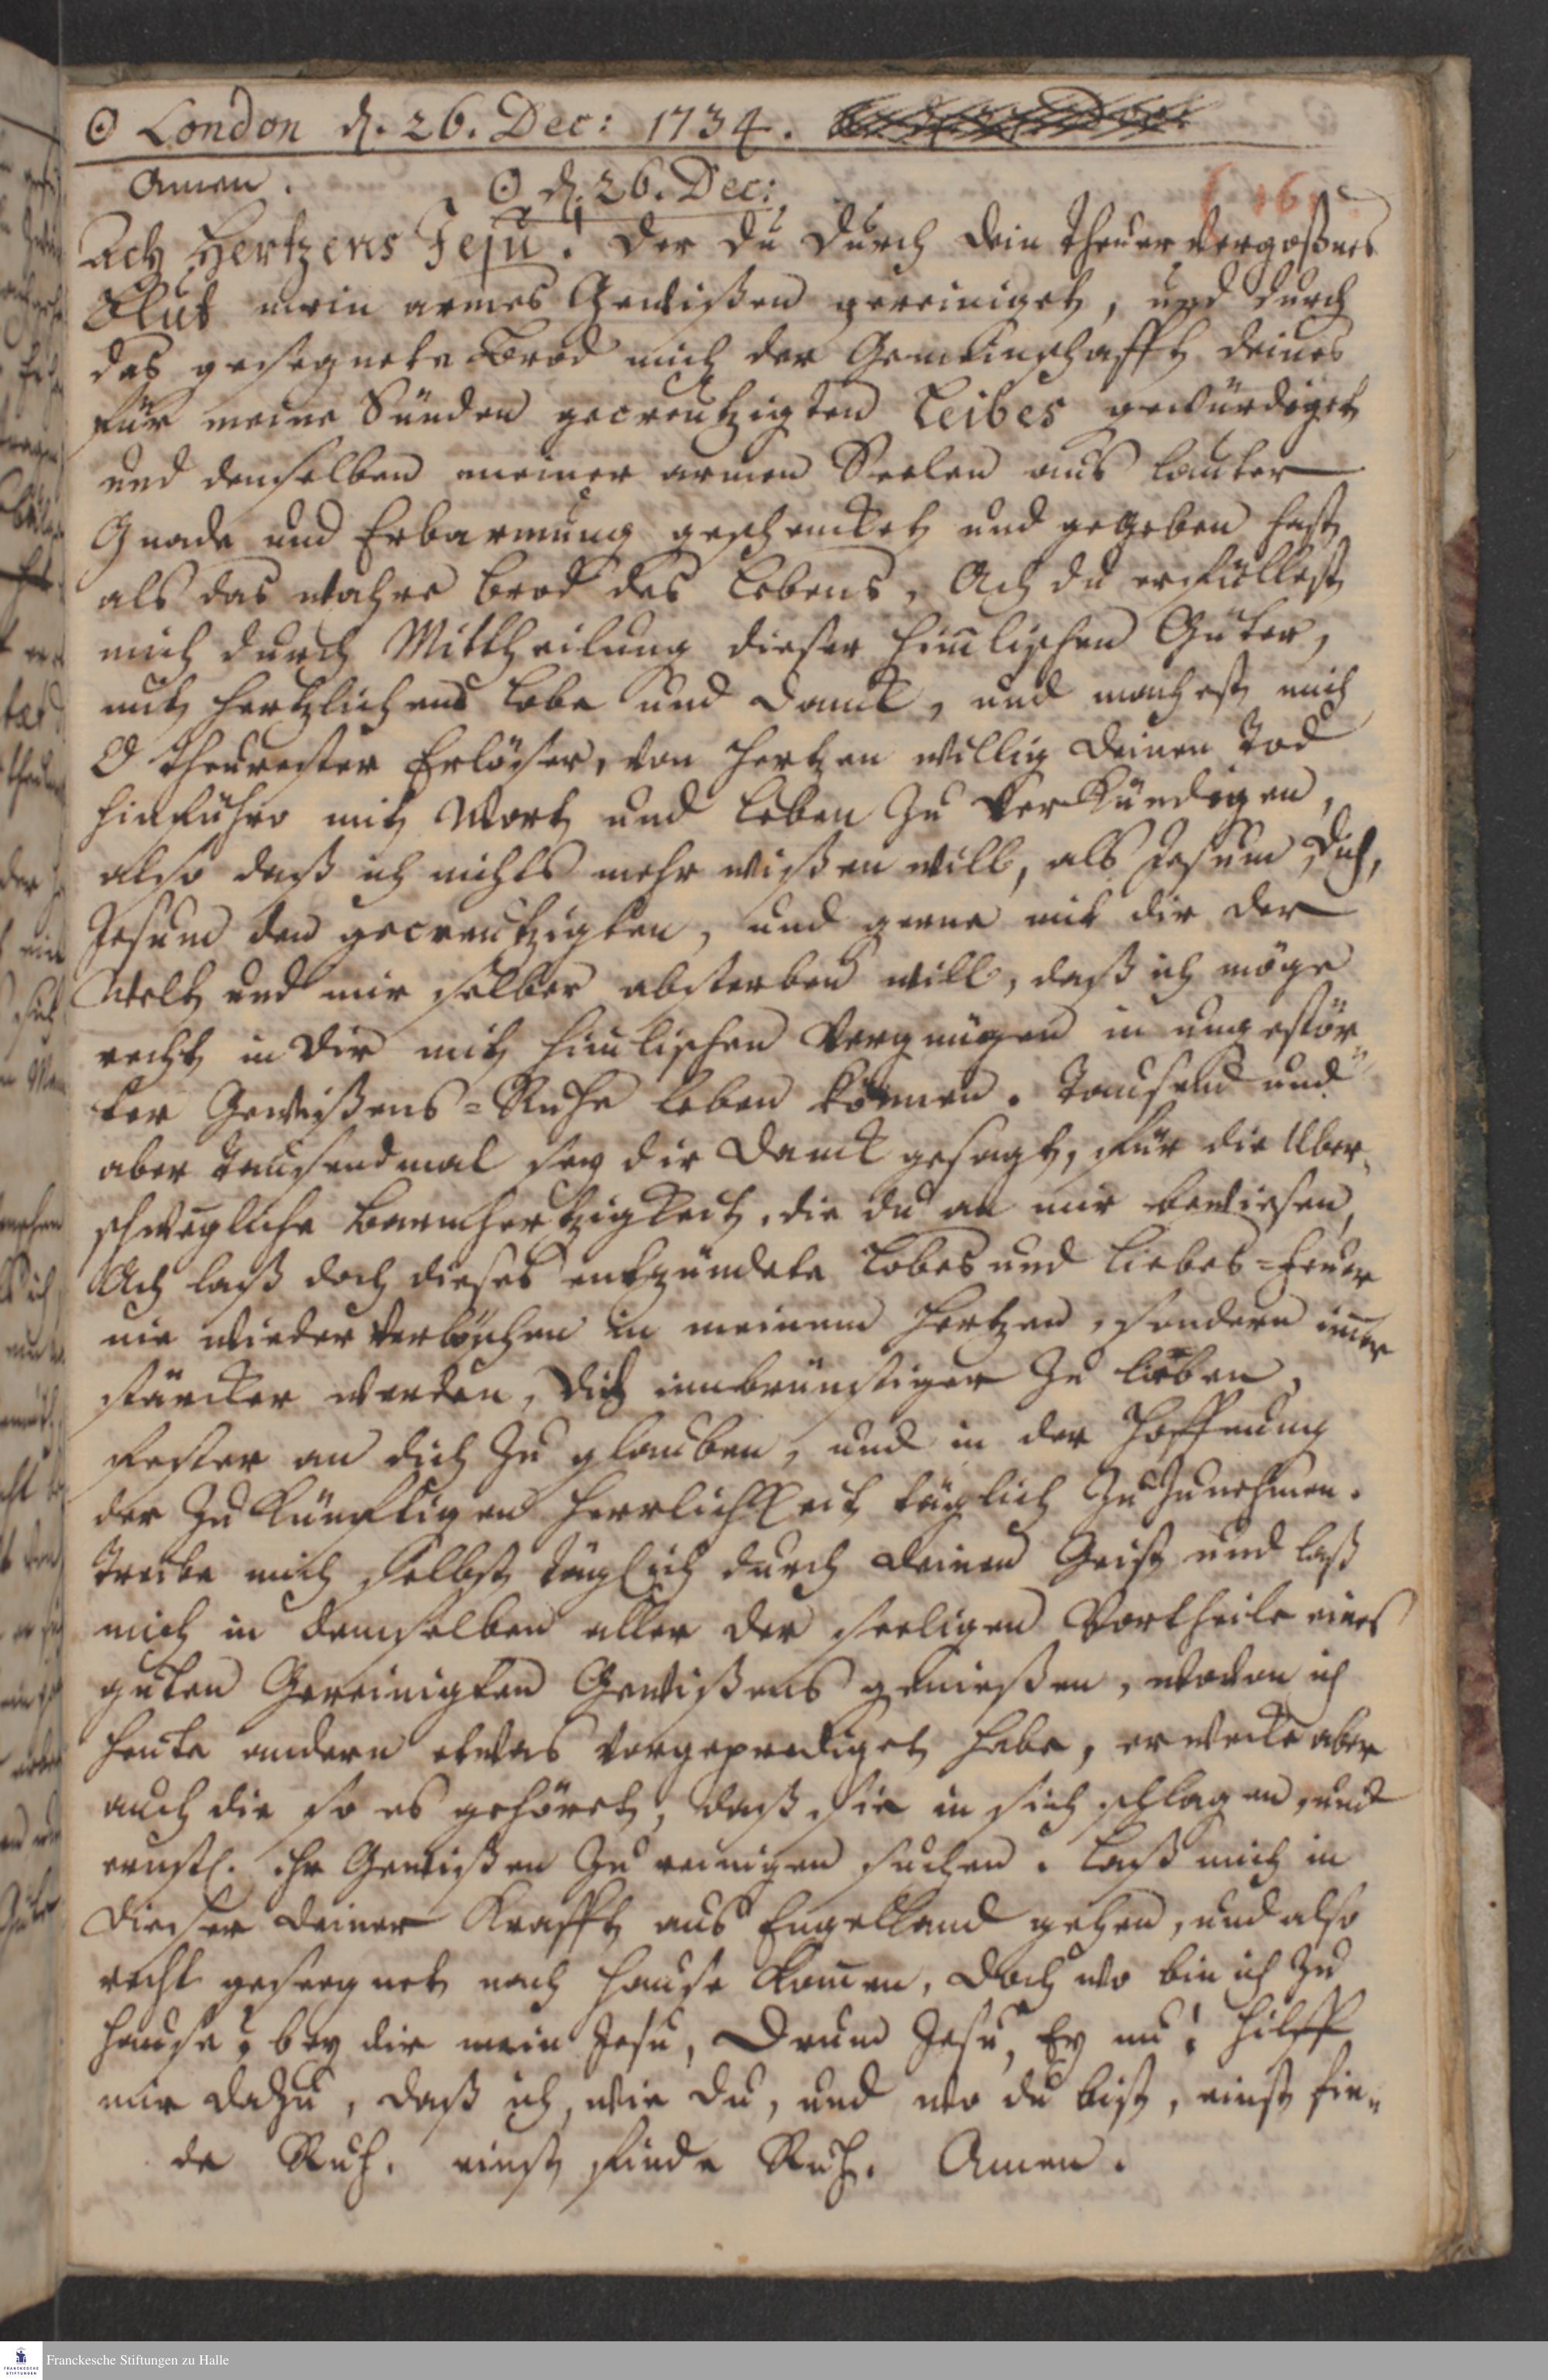 ☉ London d. 26. Dec: 1734.
Amen. ☉ d. 26. Dec:
Ach Hertzens Jesu! der du durch dein theuer vergoßnes
Blut mein armes Gewißen gereiniget, und durch
das gesegnete Brod mich der Gemeinschafft deines
für meine Sünden gecreutzigten Leibes gewürdiget
und denselben meiner armen Seelen aus lauter
Gnade und Erbarmung geschencket und gegeben hast
als das wahre brod des Lebens, Ach du erfüllest
mich durch Mittheilung dieser himlischen Güter,
mit hertzlichem Lobe und Danck, und machest mich
O theurester Erlöser, von Hertzen willig deinen Tod
hinführo mit Wort und Leben zu verkündigen,
also daß ich nichts mehr wißen will, als Jesum dich,
Jesum den gecreutzigten, und gerne mit dir der
Welt und mir selber absterben will, daß ich möge
recht in dir mit himlischen Vergnügen in ungestör„
ter Gewißens=Ruhe leben können. Tausend und
aber tausendmal sey dir Danck gesagt, für die Uber„
schwegliche Barmhertzigkeit, die du an mir bewiesen,
Ach laß doch dieses entzündete Lobes und Liebes=Feuer
nie wieder verlöschen in meinem Hertzen, sondern imer
stärcker werden, dich innbrünstiger zu lieben,
fester an dich zu glauben, und in der Hoffnung
der zukünfftigen Herrlichkeit täglich zu zunehmen.
Treibe mich selbst täglich durch deinen Geist und laß
mich in demselben aller der seeligen Vortheile eines
guten Gereinigten Gewißens genießen, wovon ich
heute andern etwas vorgeprediget habe, erwecke aber
auch die so es gehöret, daß sie in sich schlagen und
ernstl. ihr Gewißen zu reinigen suchen. Laß mich in
dieser deiner Krafft aus Engelland gehen, und also
recht gesegnet nach Hause komen, Doch wo bin ich zu
Hause? bey dir mein Jesu, Drum Jesu, Ey nu! hilff
mir dazu, daß ich, wie du, und wo du bist, einst fin„
de Ruh. einst finde Ruh. Amen.
Franckesche Stiftungen zu Halle
FRANCKESCHE
STIFTUNGEN